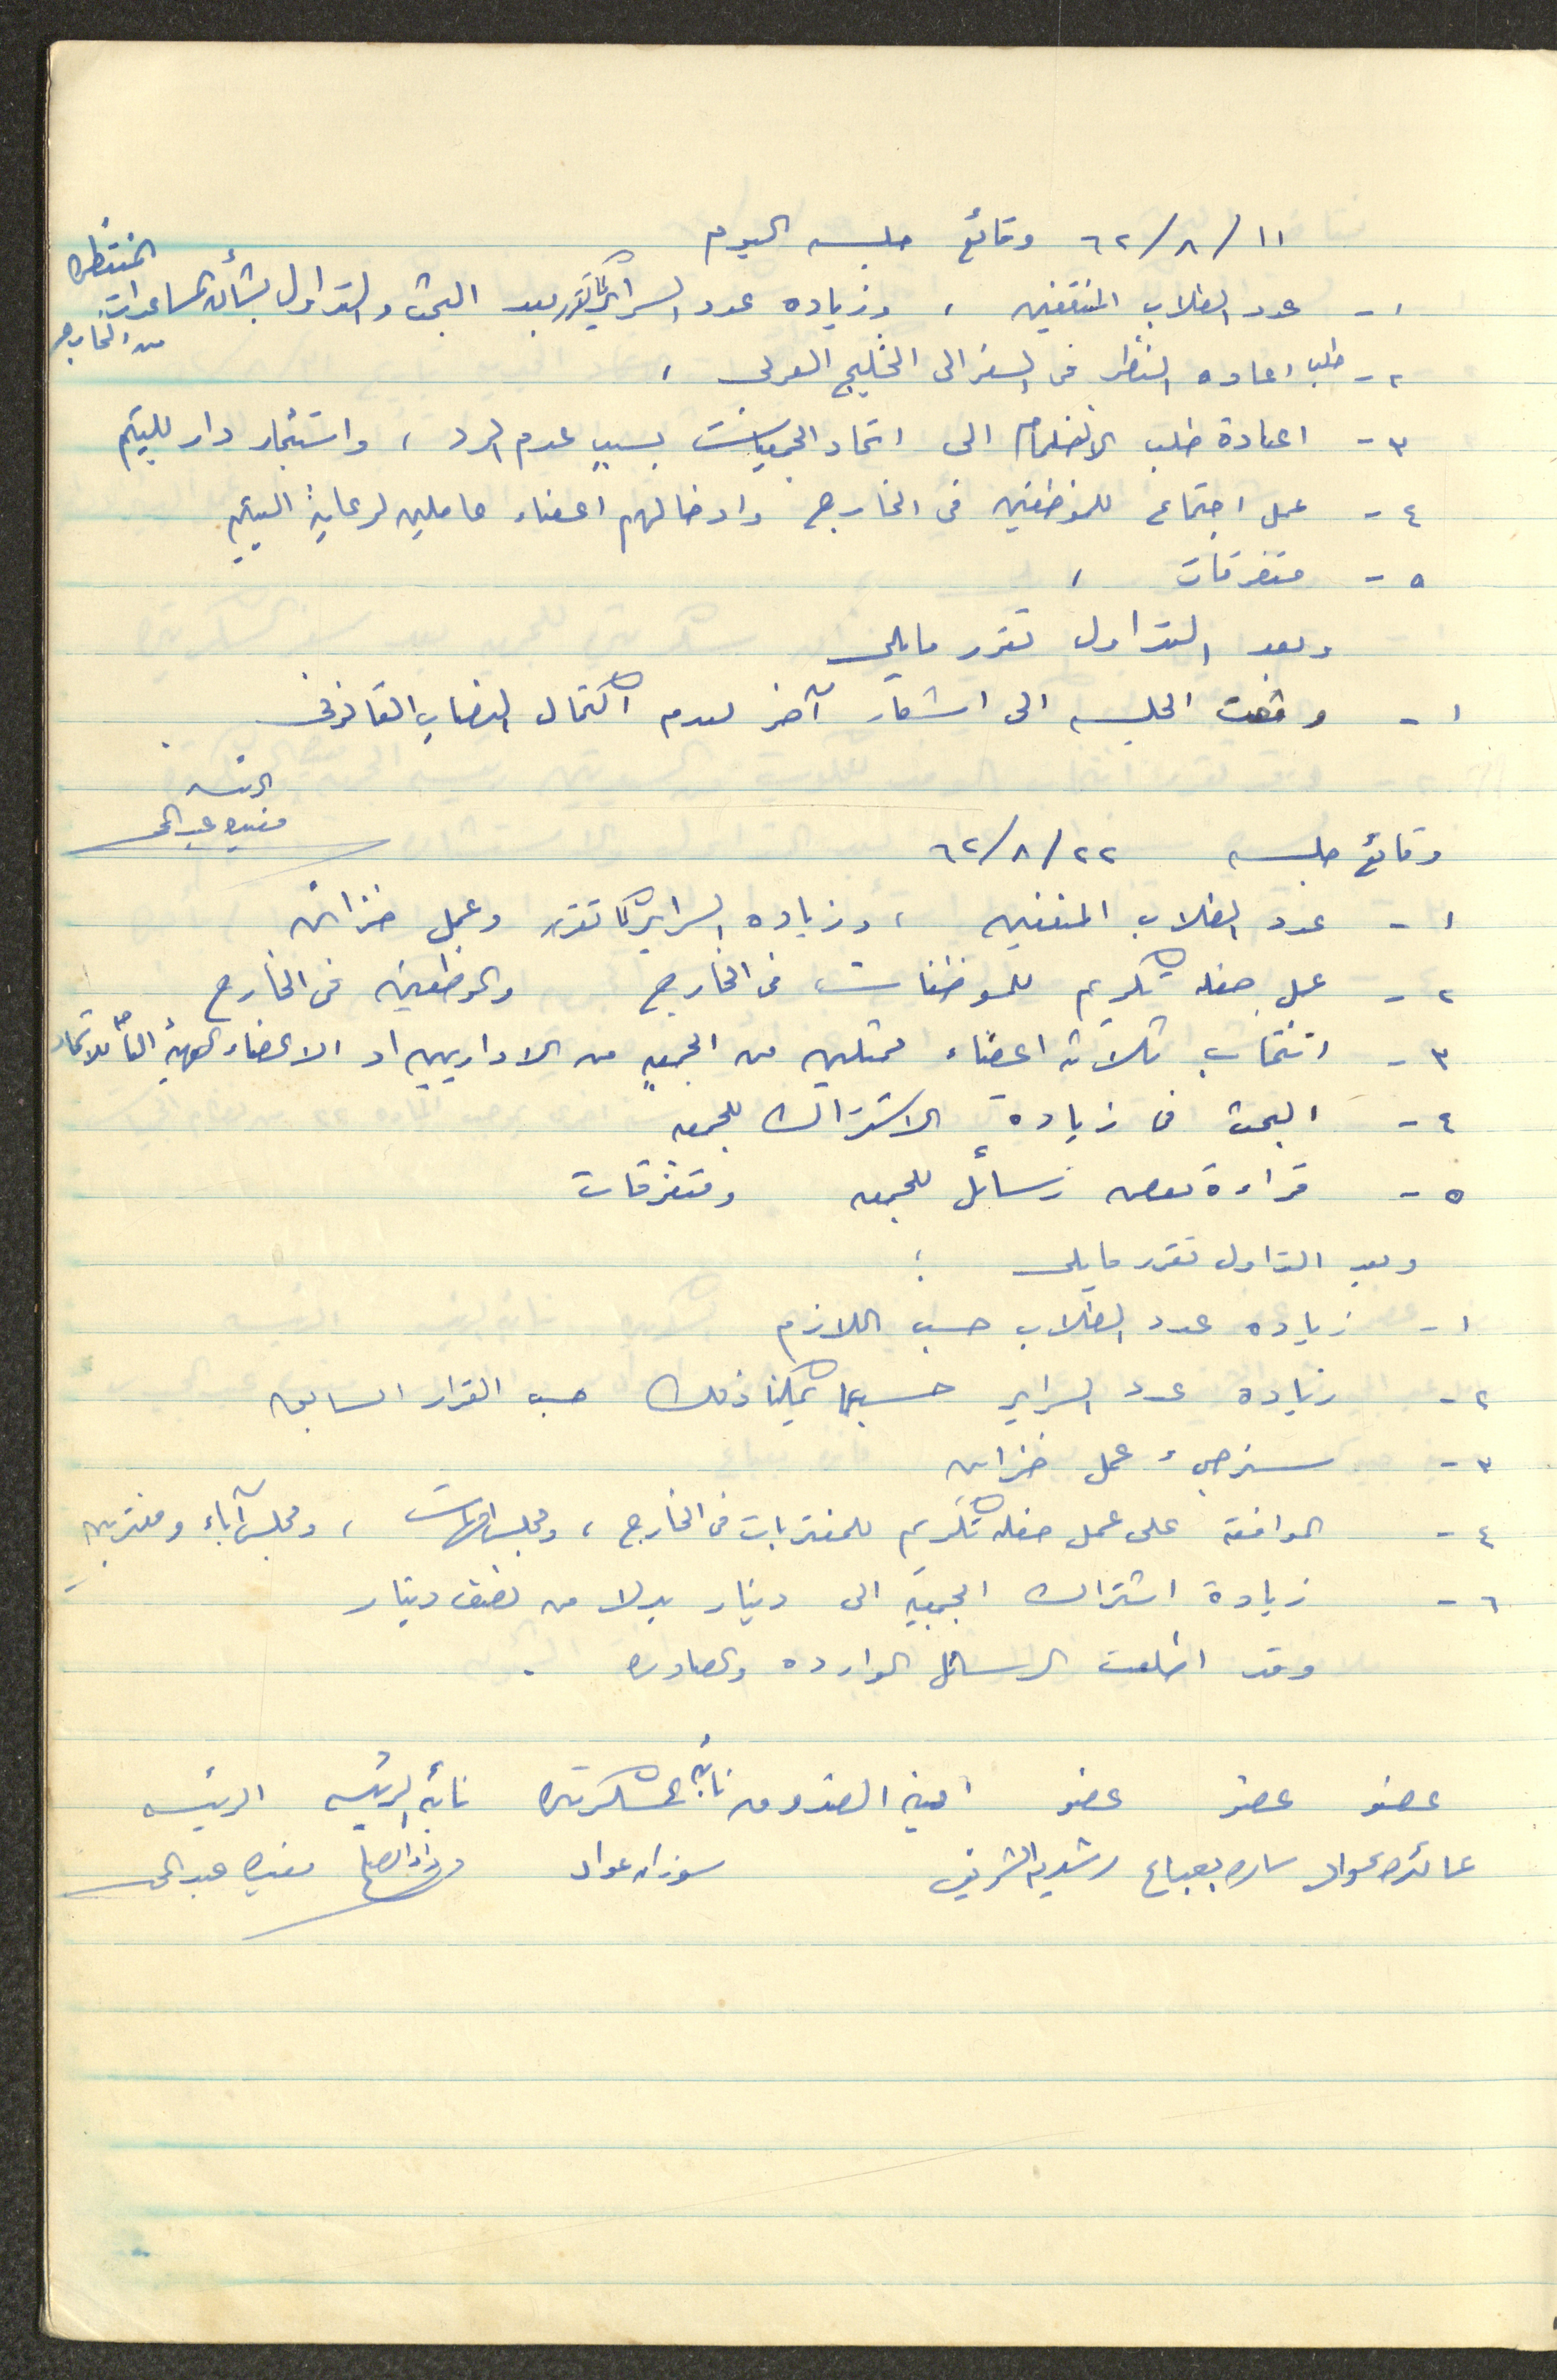 ١١/٨/٦٢ وقائع جلسه اليوم
١- عدد الطلاب المنتفعين ، وزياده عدد السراير كما تقرر بعد البحث والتداول بشأن المساعدات المنتظره من الخارج
٢- طلب اعاده النظر في السفر الى الخليج العربي ،
٣- اعادة طلب الانضمام الى اتحاد الجمعيات بسبب عدم الرد ، واستئجار دار لليتيم
٤- عمل اجتماع للموظفين في الخارج وادخالهم اعضاء عاملين لرعاية اليتيم
٥- متفرقات ،
وبعد التداول تقرر مايلي
١- رفعت الجلسه الى اشعار آخر لعدم اكتمال النصاب القانوني .
الرئيسه
مفيده عبد الرحمن
وقائع جلسه ٢٢/٨/٦٢
١- عدد الطلاب المنتفعين ، وزياده السراير كما تقرر وعمل خزائن
٢- عمل حفله تكريم للموظفات في الخارج والموظفين في الخارج
٣- انتخاب ثلاثة اعضاء ممثلين من الجمعيه من الاداريين او الاعضاء للهيئة العامه للاتحاد
٤- البحث في زيادة الاشتراك للجمعيه
٥- قراءة بعض رسائل للجمعيه ومتفرقات
وبعد التداول تقرر مايلي :
١- زياده عدد الطلاب حسب اللازم
٢- زياده عدد السراير حسبما يمكننا ذلك حسب القرار السابق
٣- سنرجيء عمل خزائن
٤- الموافقة على عمل حفله تكريم للمغتربات في الخارج ، ومجلس امهات ، ومجلس آباء ومغتربين
٦- زيادة اشتراك الجمعية الى دينار بدلا من نصف دينار
وقد اطلعت الرسائل الوارده والصادره .
عضو عضو عضو امينه الصندوق نائبة السكرتيره نائبه الرئيسه الرئيسه
عائده عواد ساره بعباع رشديه الشريف سوزان عواد مفيده عبد الرحمن